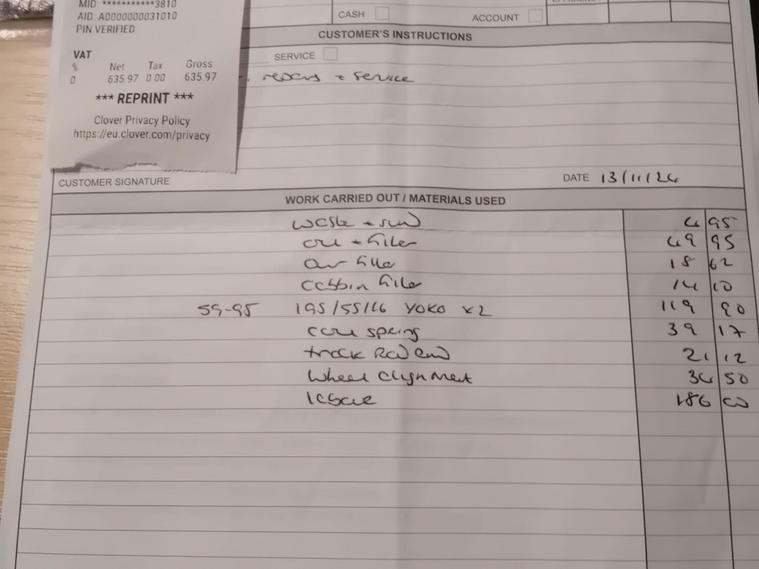 MID: ***********3810
AID: A0000000031010
PIN VERIFIED
VAT
% Net Tax Gross
0 635.97 0.00 635.97
*** REPRINT ***
Clover Privacy Policy
https://eu.clover.com/privacy
CASH ACCOUNT
CUSTOMER'S INSTRUCTIONS
SERVICE
+ service
CUSTOMER SIGNATURE DATE 13/11/24
WORK CARRIED OUT / MATERIALS USED
waste + sund 4 95
oil + filter 49 95
air filter 18 62
cabbin filter 14 10
59-95 195/55/16 YOKO x2 119 90
coil spring 39 17
track Rod end 21 12
wheel alignment 34 50
labour 186 00